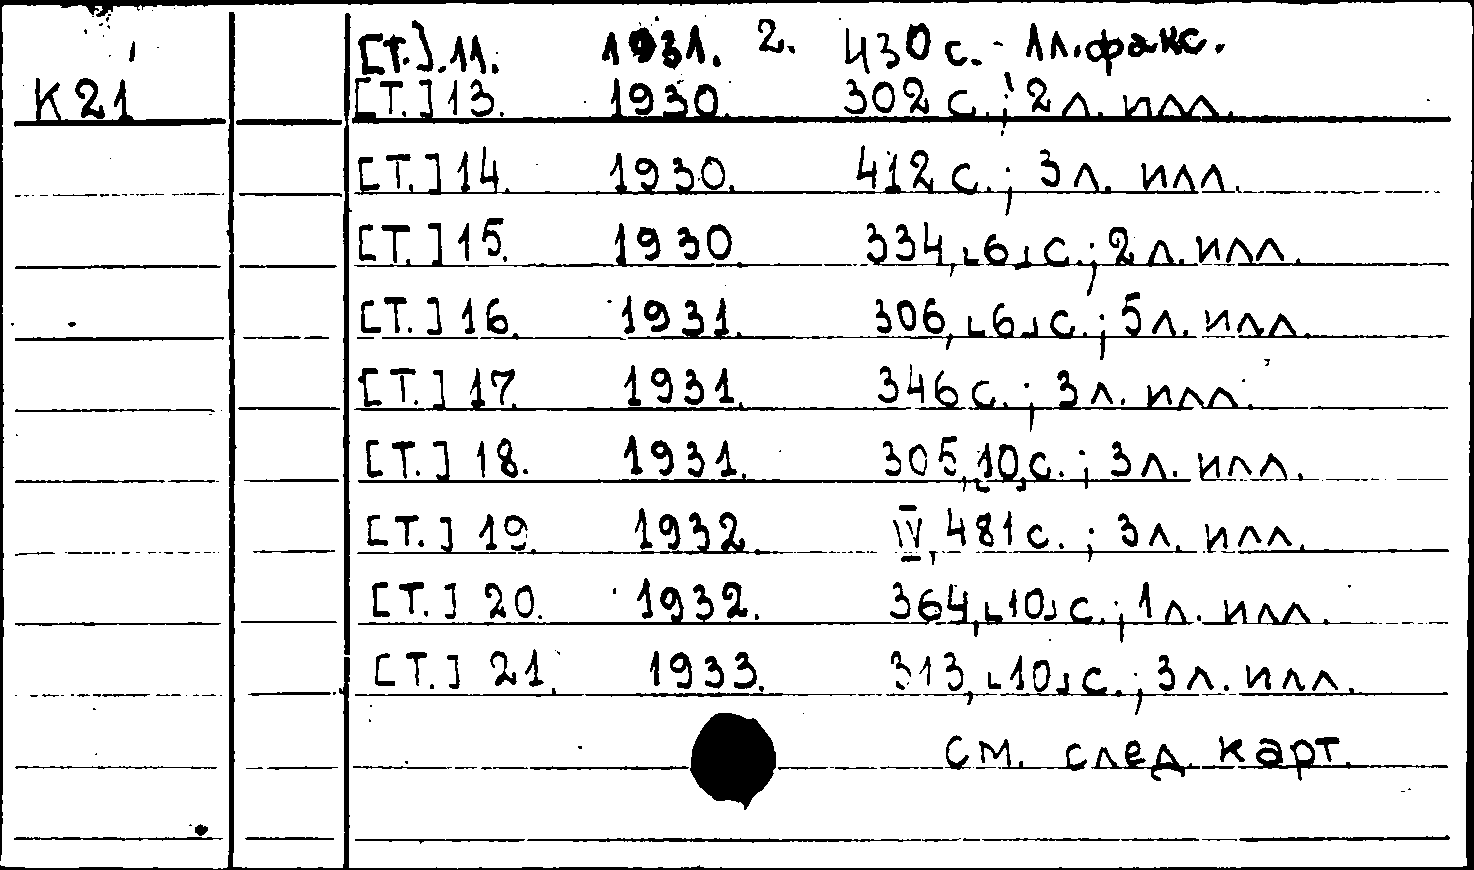 [Т.].11. 1931. 2. 430 с. - 1л. факс.
К21 [Т.] 13. 1930. 302 с.; 2 л. илл.
[Т.] 14. 1930. 412 с.; 3 л. илл.
[Т.] 15. 1930. 334, [6] с.; 2 л. илл.
[Т.] 16. 1931. 306, [6] с.; 5 л. илл.
[Т.] 17. 1931. 346 с.; 3 л. илл.
[Т.] 18. 1931. 305, [10] с.; 3 л. илл.
[Т.] 19. 1932. IV, 481 с.; 3 л. илл.
[Т.] 20. 1932. 364, [10] с.; 1 л. илл.
[Т.] 21. 1933. 313, [10] с.; 3 л. илл.
см. след. карт.